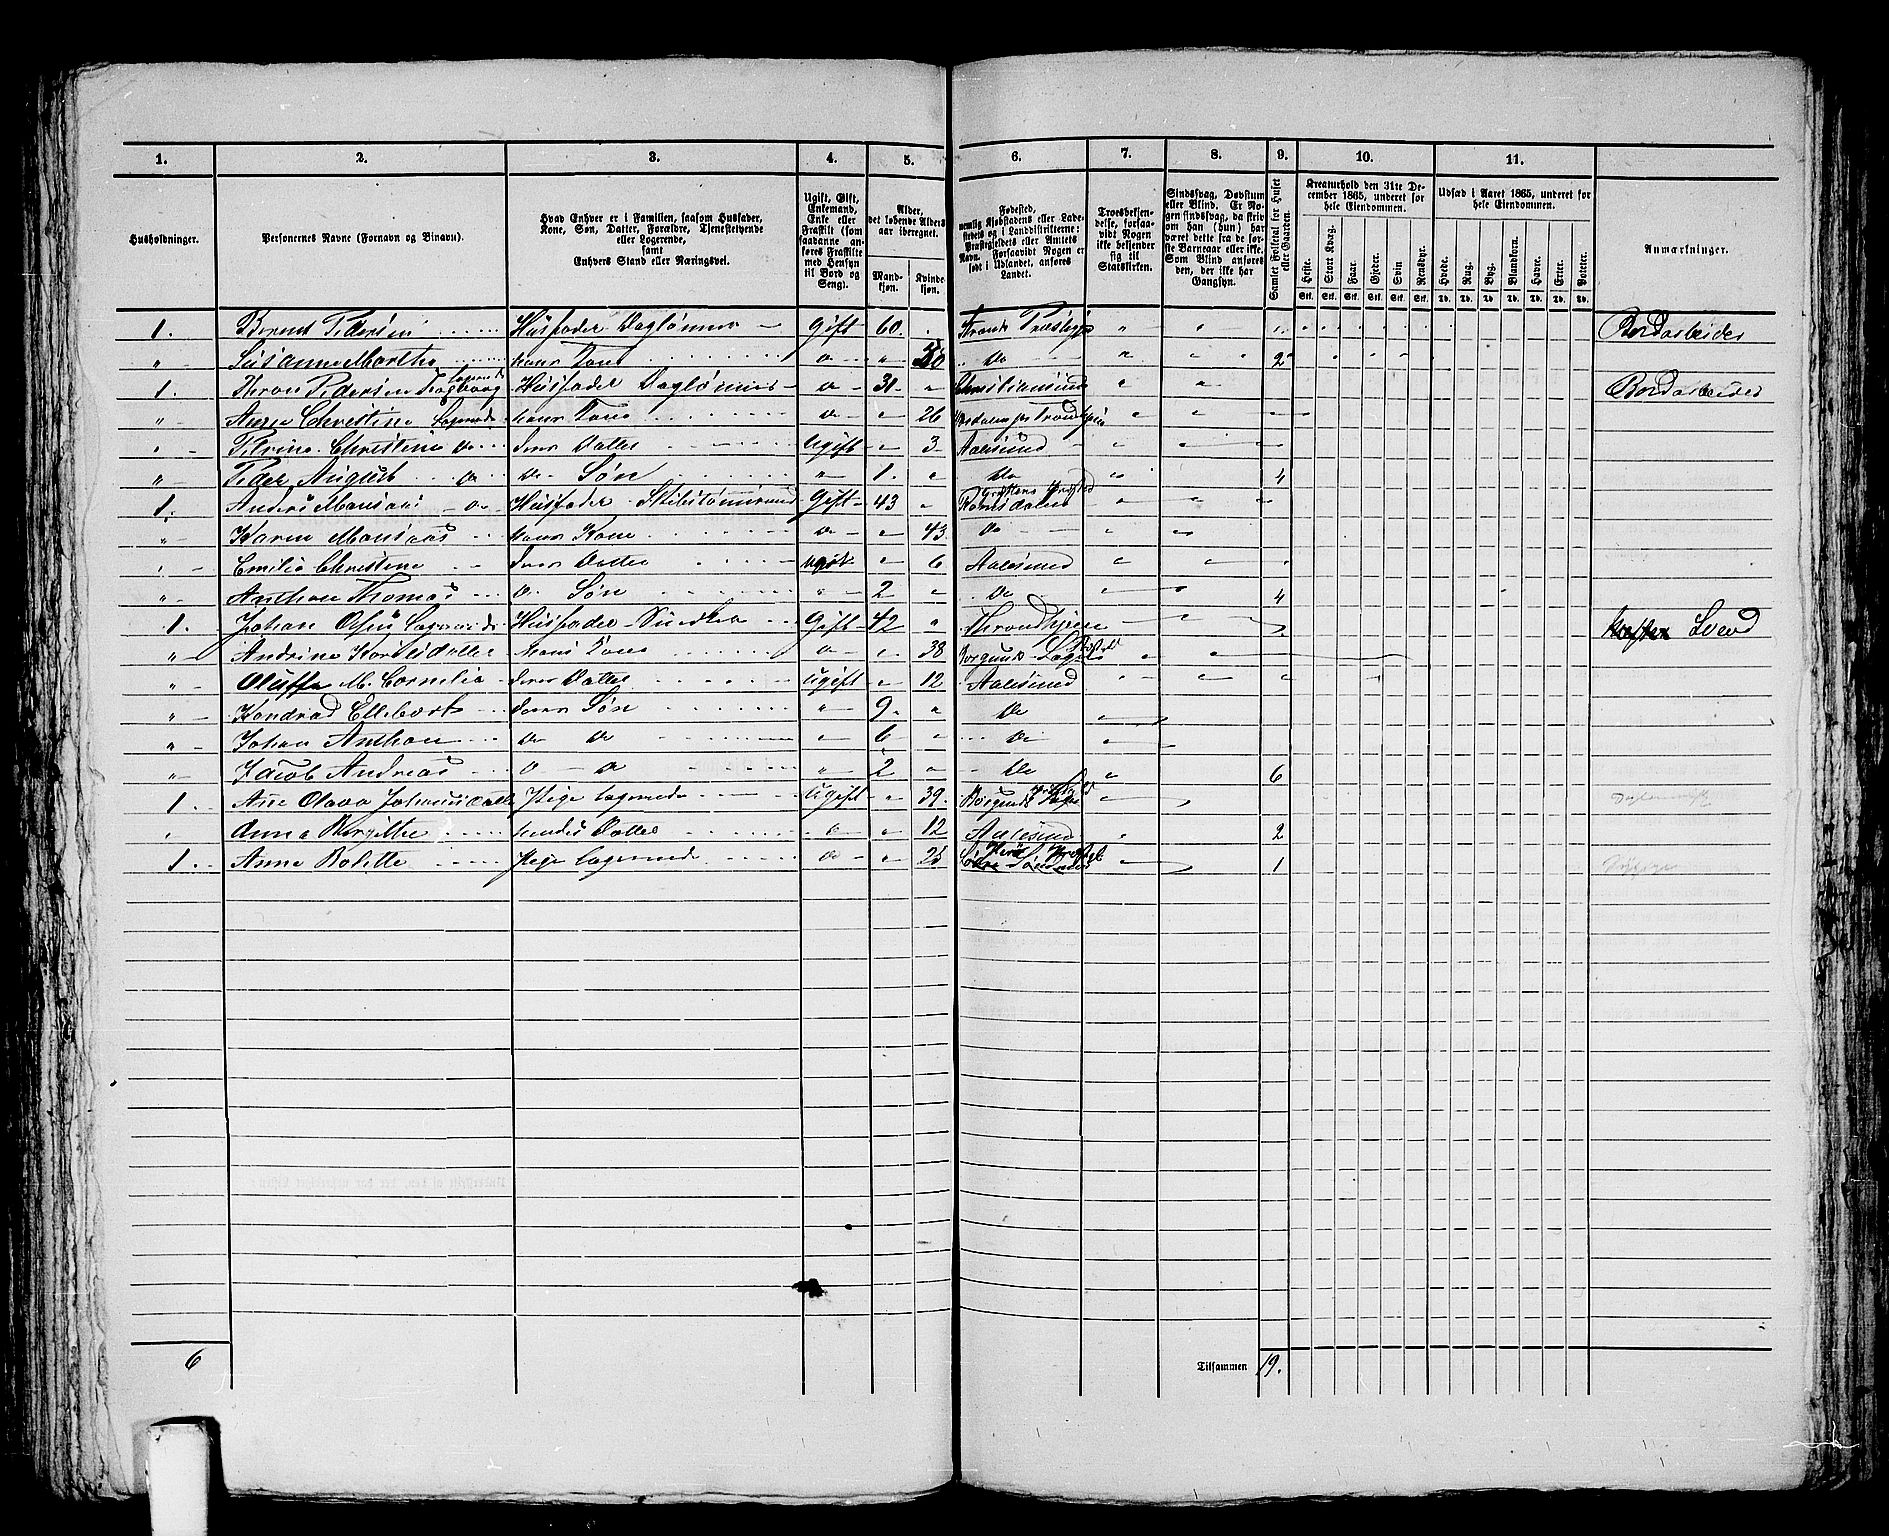 1. 2. 3. 4. 5. 6. 7. 8. 9. 10. 11.
Husholdninger.
Personernes Navne (Fornavn og Binavn).
Hvad Enhver er i Familien, saasom Husfader, Kone, Søn, Datter, Forældre, Tjenestetyende eller Logerende, samt Enhvers Stand eller Næringsvei.
Ugift, Gift, Enkemand, Enke eller Fraskilt (som saadanne anføres Fraskilte med Hensyn til Bord og Seng).
Alder, det løbende Alders aar iberegnet.
Mandkjøn. Kvindekjøn.
Fødested, nemlig Kjøbstadens eller Ladestedets og i Landdistrikterne: Præstegjeldets eller Amtets Navn. Forsaavidt Nogen er født i Udlandet, anføres Landet.
Troesbekjendelse, forsaavidt Nogen ikke bekjender sig til Statskirken.
Sindssvag, Døvstum eller Blind. Er Nogen sindssvag, da skrives om han (hun) har været dette fra de første Barneaar eller ikke. Som Blind anføres den, der ikke har Gangsyn.
Samlet Folketal for Huset eller Gaarden.
Kreaturhold den 31te December 1865, underet for hele Eiendommen.
Heste. Stort Kvæg. Faar. Gjeder. Svin Rensdyr.
Stk. Stk. Stk. Stk. Stk. Stk.
Udsæd i Aaret 1865, underet for hele Eiendommen.
Hvede. Rug. Byg. Blandkorn. Havre. Erter. Poteter.
Td. Td. Td. Td. Td. Td. Td.
Anmærkninger.
1. Berent Pedersen Husfader Daglønner Gift 60. Bordarbeider
" Susanne Martha hans Kone do " 2
1. Pedersen Logerende Husfader Daglønner do 31 " Christiansund " " Bordarbeider
" Anne Christine Logerende hans Kone do " 26
" Christine do deres Datter Ugift " 3 Aalesund
" Peder August do do Søn " 1. " do 4
1. Anders Monsaas do Husfader Gift 43 " Romsdalen
" Karen Monsaas hans Kone do " 43 do
" Emilie Christine deres Datter Ugift " 6 Aalesund
" Anthon Thomas do Søn " 2 " do 4
1. Johan Olsen Logerende Husfader Snedker Gift 42 " Throndhjem Svend
" Andrine hans Kone do " 38 Borgund
" Oluffa M. Cornelia deres Datter Ugift " 12 Aalesund
" Kondrad Ellebert deres Søn " 9 " do
" Johan Anthon do do " 6 " do
" Jacob Andreas do do " 2 " do 6
1. Ane Olava Pige Logerende Ugift " 39. Borgund
" Anna Birgitte hendes Datter do " 12 Aalesund 2
1. Anne Bolette Pige Logerende do " 1
6 Tilsammen 19.